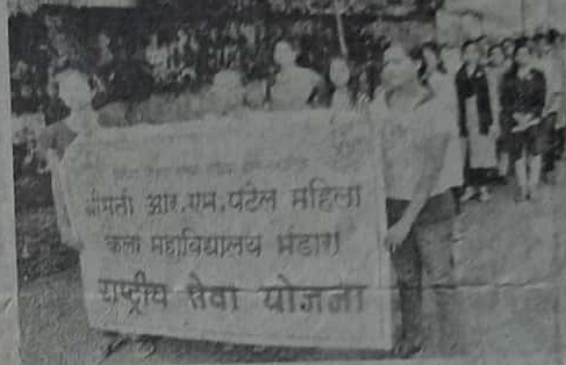 श्रीमती आर.एम.पटेल महिला
कला महाविद्यालय भंडारा
राष्ट्रीय सेवा योजना